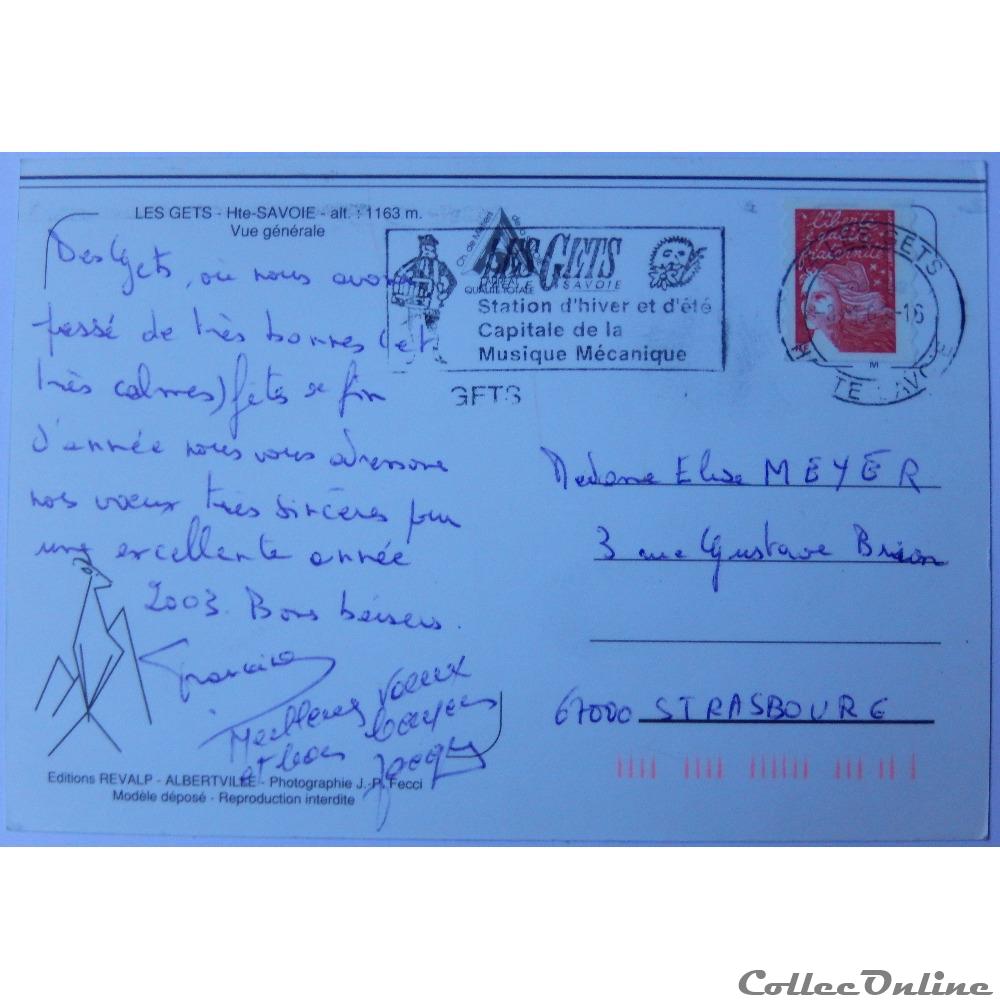 LES GETS - Hte-SAVOIE - alt. : 1163 m.
Vue générale
Des Gets, où nous avons
passé de très bonnes (et
très calmes) fêtes de fin
d'année nous vous adressons
nos voeux très sincères pour
une excellente année
2003. Bons baisers.
Francine
Meilleurs voeux
et bons baisers
Jacques
Editions REVALP - ALBERTVILLE - Photographie J.-P. Fecci
Modèle déposé - Reproduction interdite
LES GETS
SAVOIE
QUALITE TOTALE
Station d'hiver et d'été
Capitale de la
Musique Mécanique
GETS
Liberté
égalité
fraternité
LES GETS
-16
HAUTE SAVOIE
M
Madame Elise MEYER
3 rue Gustave Brion
67000 STRASBOURG
CollecOnline